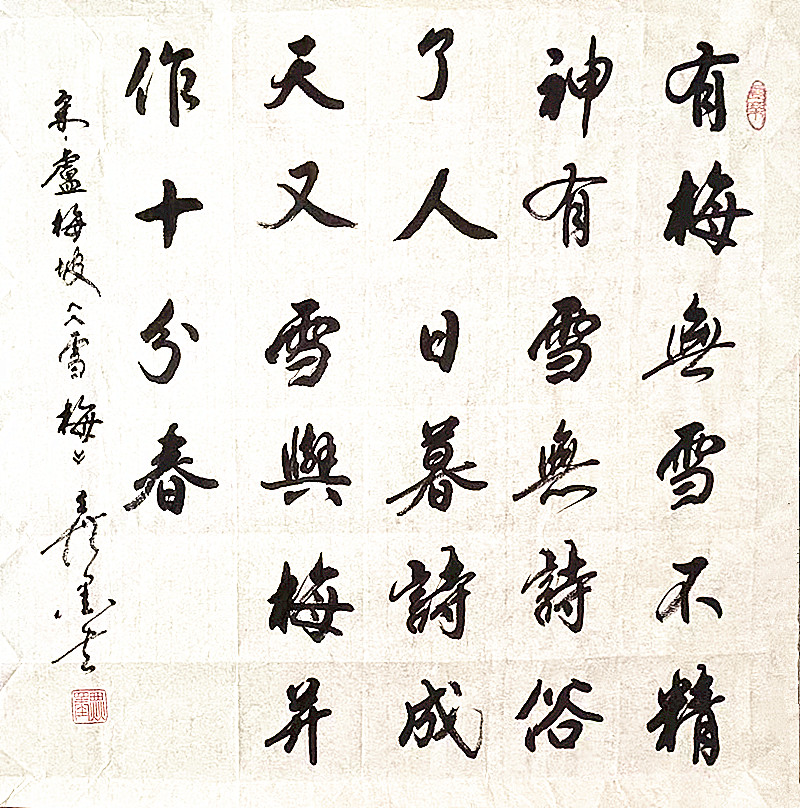 有梅無雪不精
神有雪無詩俗
了人日暮詩成
天又雪與梅并
作十分春
宋·盧梅坡《雪梅》